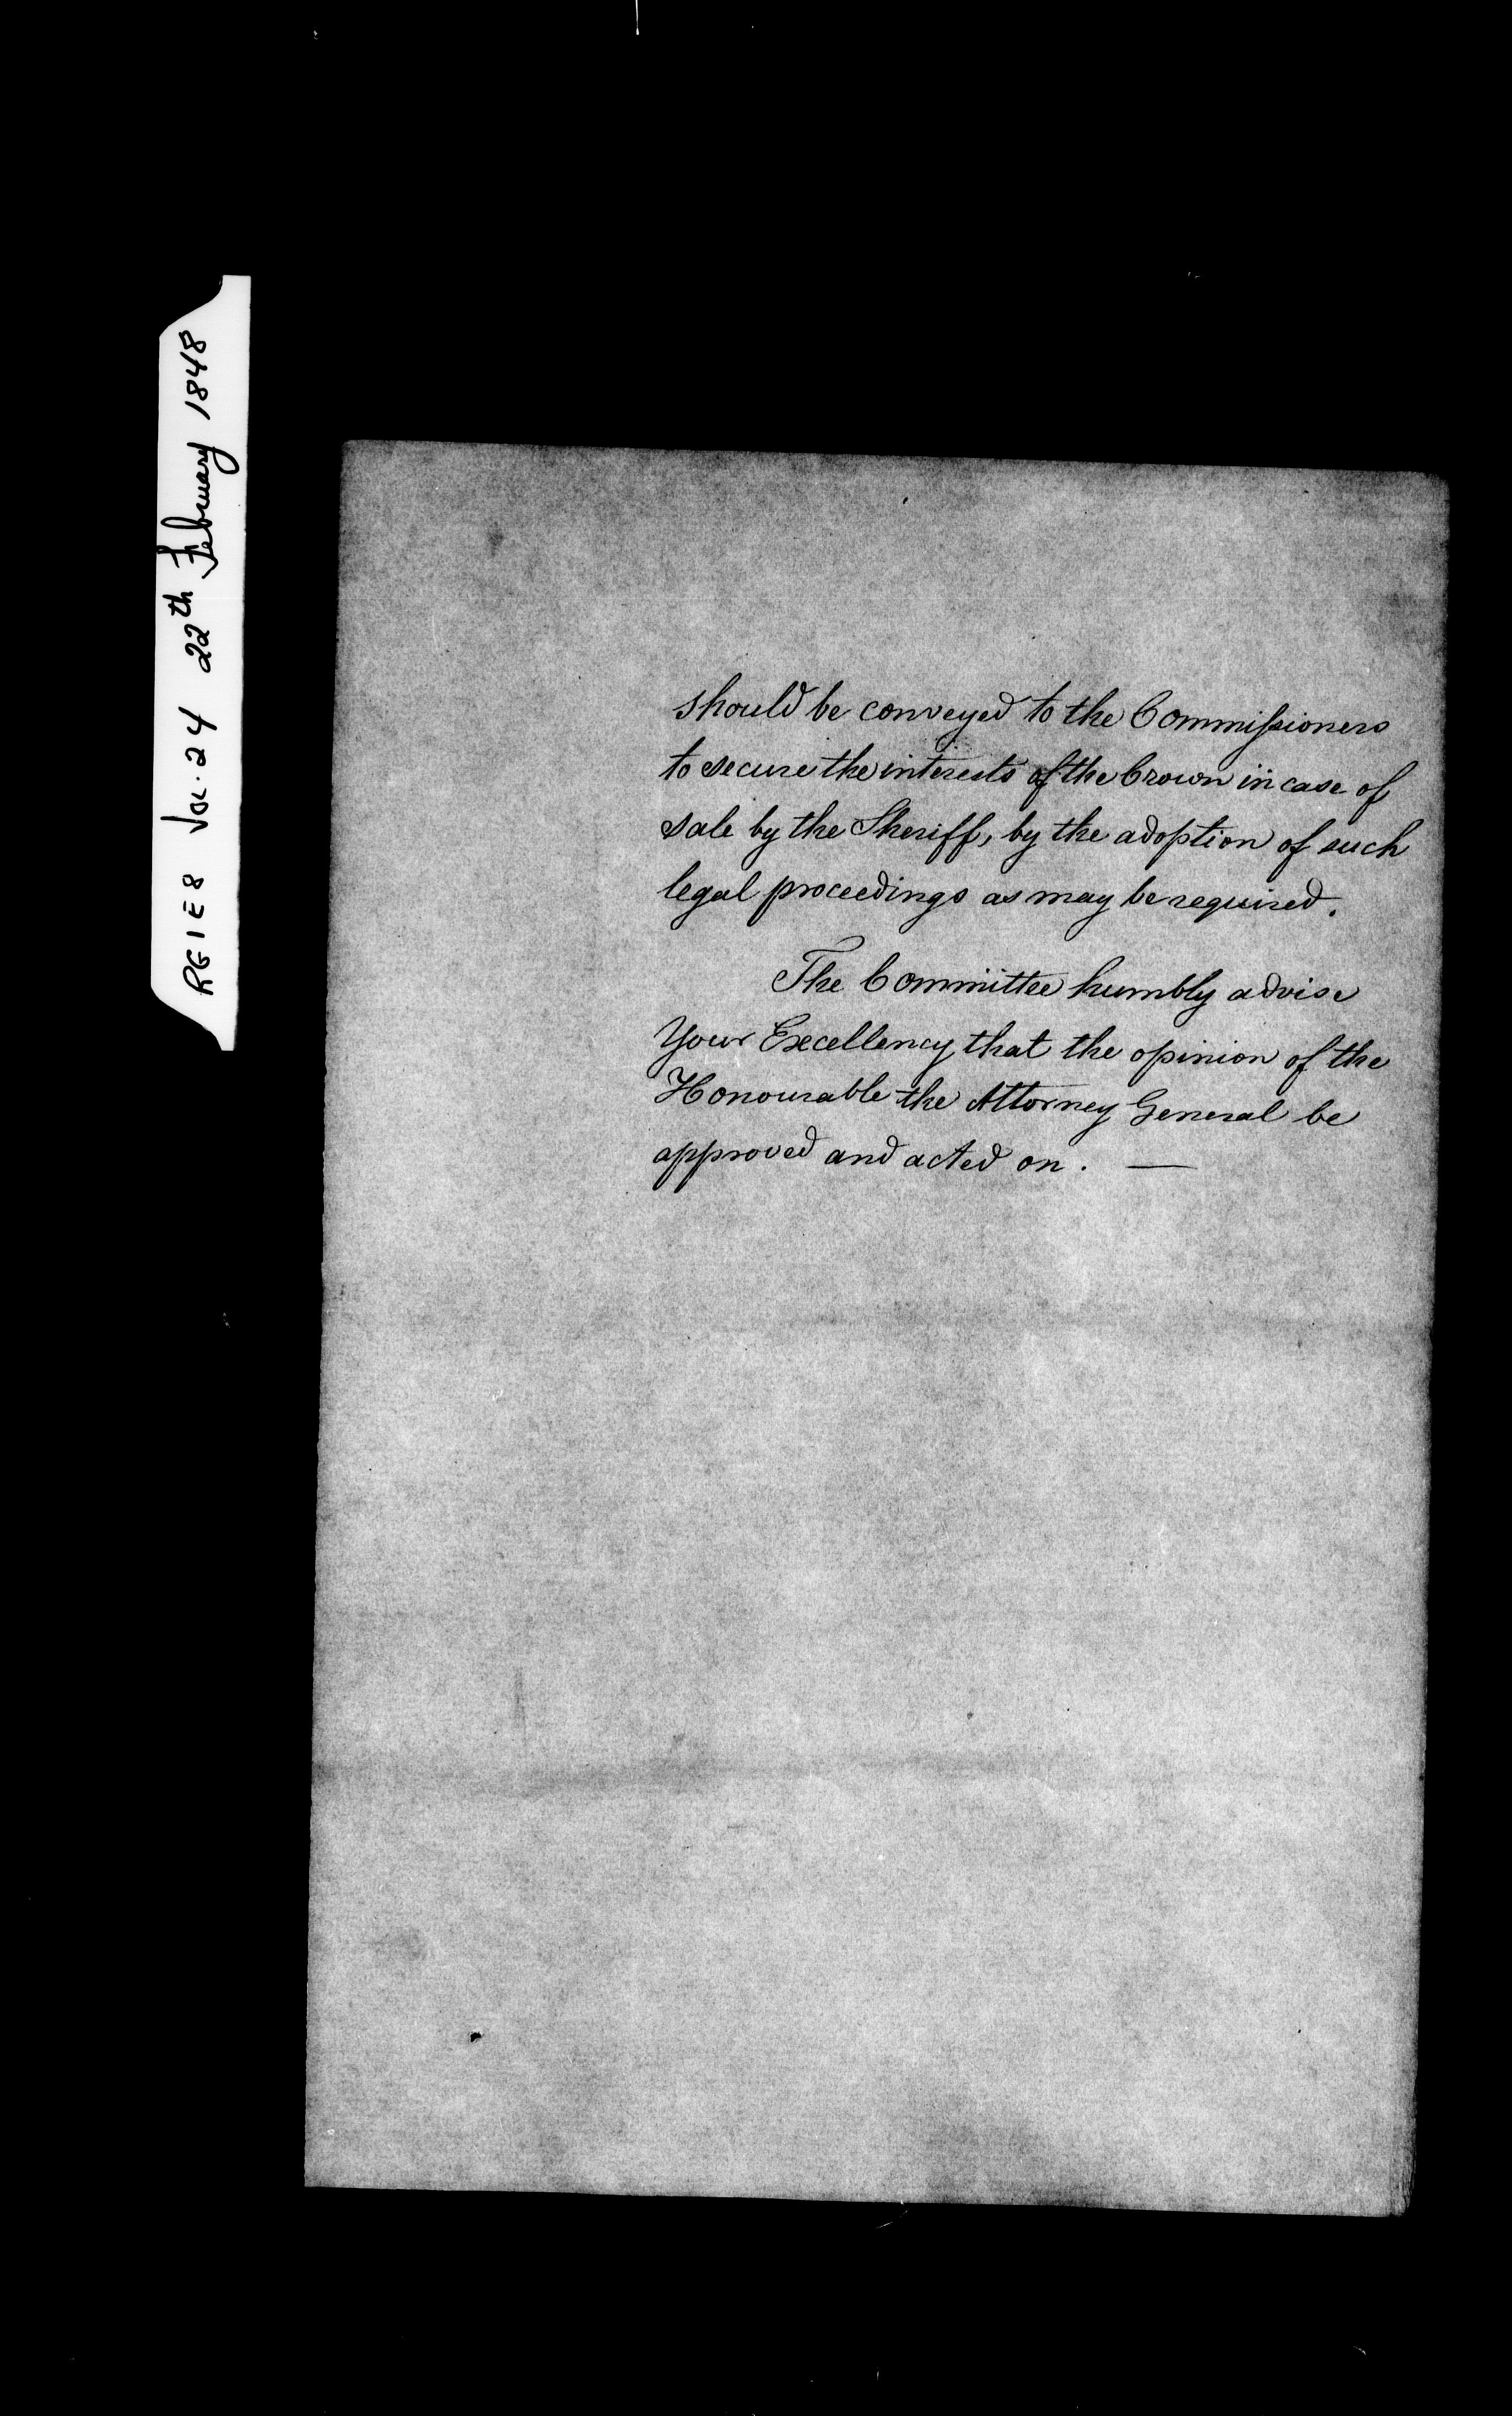 RG1E8 Vol. 24 22th February 1848
should be conveyed to the Commiſsioners
to secure the interests of the Crown in case of
sale by the Sheriff, by the adoption of such
legal proceedings as may be required.
The Committee humbly advise
Your Excellency that the opinion of the
Honourable the Attorney General be
approved and acted on. —